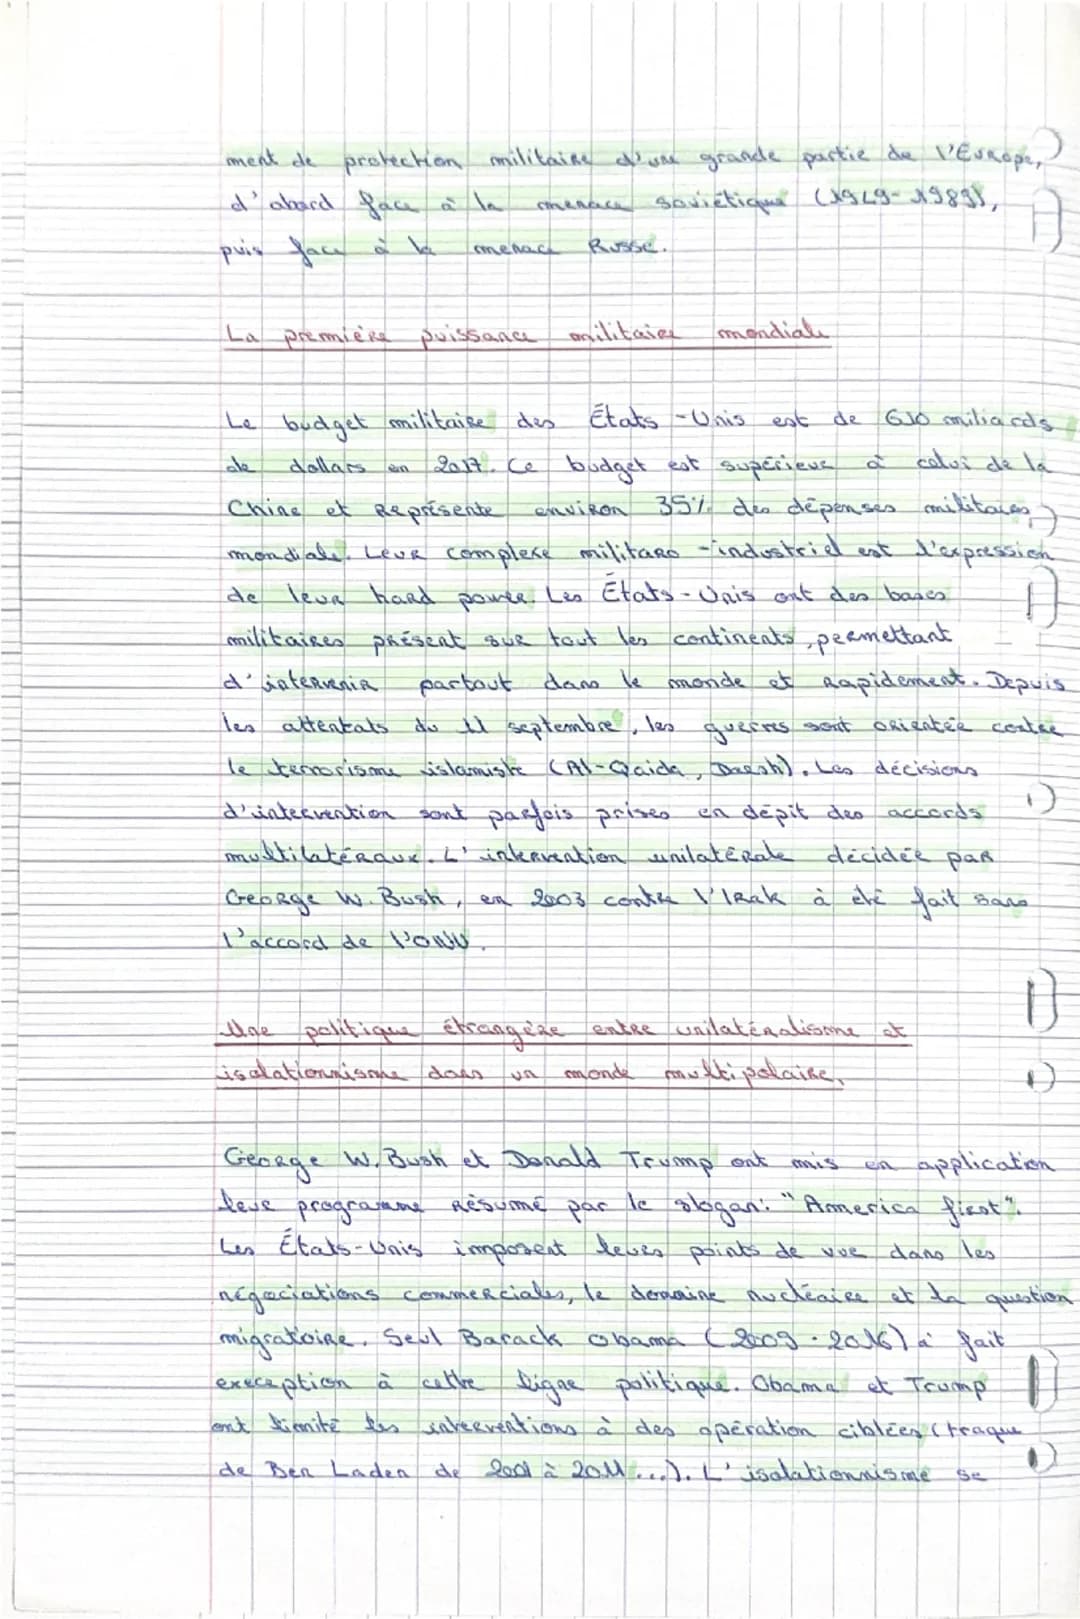 ment de protection militaire d'une grande partie de l'Europe,
d'abord face à la menace soviétique (1949-1989),
puis face à la menace Russe.
La première puissance militaire mondiale
Le budget militaire des États-Unis est de 610 miliards
de dollars en 2017. Ce budget est supérieur à celui de la
Chine et Représente environ 35% des dépenses militaires
mondiale. Leur complexe militaro-industriel est l'expression
de leur hard power. Les États-Unis ont des bases
militaires présent sur tout les continents, permettant
d'intervenir partout dans le monde et Rapidement. Depuis
les attentats du 11 septembre, les guerres sont orientée contre
le terrorisme islamiste (Al-Qaida, Daesh). Les décisions
d'intervention sont parfois prises en dépit des accords
multilatéraux. L'intervention unilatérale décidée par
George W. Bush, en 2003 contre l'Irak à été fait sans
l'accord de l'ONU.
Une politique étrangère entre unilatéralisme et
isolationnisme dans un monde multipolaire.
George W. Bush et Donald Trump ont mis en application
leur programme Résumé par le slogan: "America first".
Les États-Unis imposent leurs points de vue dans les
négociations commerciales, le domaine nucléaire et la question
migratoire. Seul Barack Obama (2009-2016) à fait
exeception à cette ligne politique. Obama et Trump
ont limité les interventions à des opération ciblées (traque
de Ben Laden de 2001 à 2011...). L'isolationnisme se